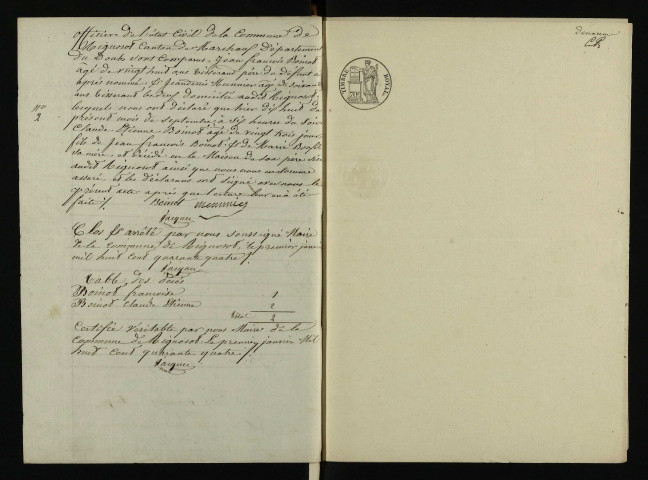 officier de l'état Civil de la Commune de
Mignovot Canton de Marchaux Département
Du Doubs Sont Comparus Jean francois Boinot
âgé de vingt huit ans tisserand père du défunt ci
après nommé, et Jeandenis Mennier âgé de soixante
ans tisserand les deux domiciliés audit Mignovot,
lesquels nous ont déclaré que hier dix huit du
n.o
2
présent mois de septembre à six heures du soir
Claude Etienne Boinot âgé de vingt trois jours
fils de Jean francois Boinot et de Marie
sa mère, est décédé en la Maison de son père
audit Mignovot ainsi que nous nous en sommes
assuré et les déclarans ont signé avec nous le
présent acte après que lecture leur en a été
faite /.
Boinot mennier
Jacquin
Clos et arrêté par nous soussigné Maire
de la Commune de Mignovot, le premier janvier
mil huit cent quarante quatre /.
Jacquin
Table des Décès
Boinot francoise 1
Boinot Claude Etienne 2
Total 2
Certifié véritable par nous Maire de la
Commune de Mignovot le premier janvier Mil
huit Cent quarante quatre /.
Jacquin
TIMBRE ROYAL